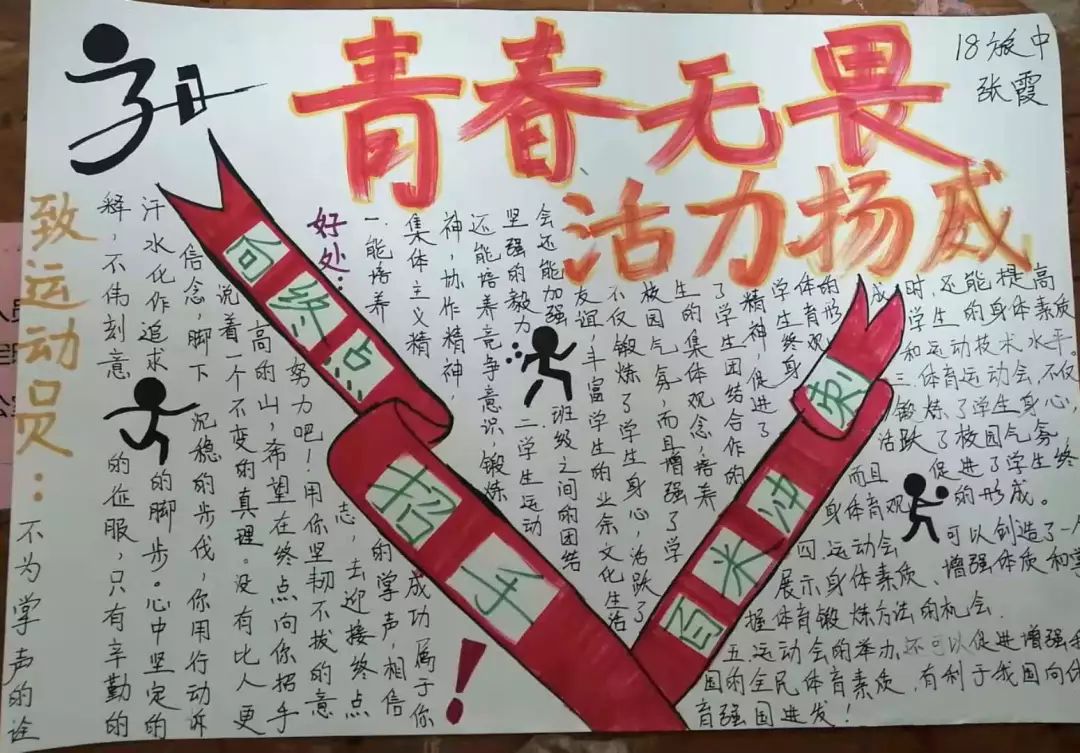 青春无畏
活力扬威
18旅中
张霞
致运动员:
不为掌声的诠
释,不伟刻意
的征服,只有辛勤的
汗水化作追求
的脚步。心中坚定的
信念,脚下
沉稳的步伐,你用行动诉
说着一个不变的真理。没有比人更
高的山,希望在终点向你招手
努力吧!用你坚韧不拔的意
志,去迎接终点
的掌声,相信
成功属于你
!
向终点
招手
百米冲刺
好处:
一.能培养
集体主义精
神,协作精神,
还能培养竞争意识锻炼
坚强的毅力 二.学生运动
会还能加强 班级之间的团结
友谊,丰富学生的业余文化生活
不仅锻炼了学生身心,活跃了
校园气氛,而且增强了学
生的集体观念,培养
了学生团结合作的
精神,促进了
学生终身
体育观
的形
成,时,还能提高
学生的身体素质
和运动技术水平。
三.体育运动会,不仅
锻炼了学生身心,
活跃了校园气氛,
而且 促进了学生终
身体育观 的形成。
四.运动会 可以创造了一个
展示身体素质、增强体质和掌
握体育锻炼方法的机会.
五.运动会的举办,还可以促进增强我
国的全民体育素质,有利于我国向体
育强国进发!